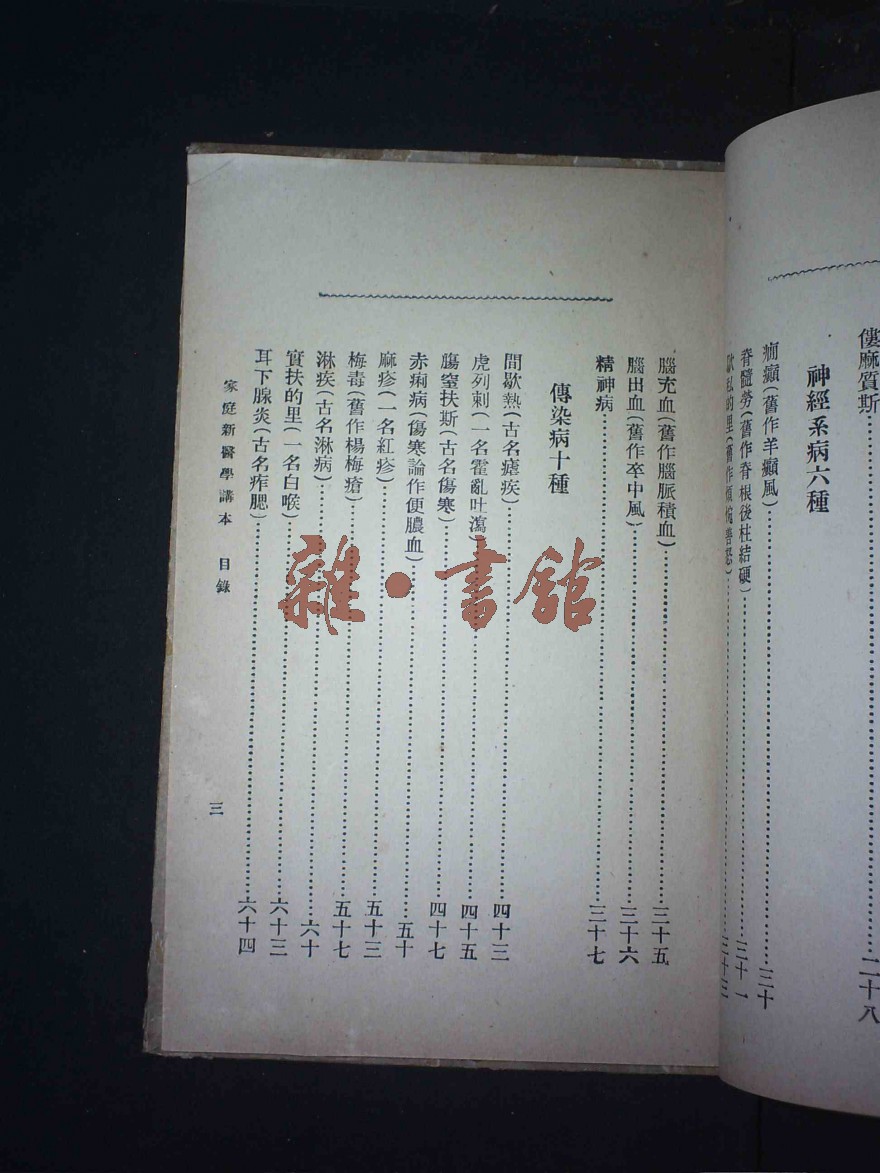 僂麻質斯⋯⋯二十八
神經系病六種
痫癲(舊作羊癲風)⋯⋯三十
脊髓勞(舊作脊根後柱結硬)⋯⋯三十一
的里(舊作⋯⋯三十三
腦充血(舊作腦脈積血)⋯⋯三十五
腦出血(舊作卒中風)⋯⋯三十六
精神病⋯⋯三十七
傳染病十種
間歇熱(古名瘧疾)⋯⋯四十三
虎列剌(一名霍亂吐瀉)⋯⋯四十五
腸窒扶斯(古名傷寒)⋯⋯四十七
赤痢病(傷寒論作便膿血)⋯⋯五十
麻疹(一名紅疹)⋯⋯五十三
梅毒(舊作楊梅瘡)⋯⋯五十七
淋疾(古名淋病)⋯⋯六十
實扶的里(一名白喉)⋯⋯六十三
耳下腺炎(古名痄腮)⋯⋯六十四
家庭新醫學講本 目錄 三
雜·書館